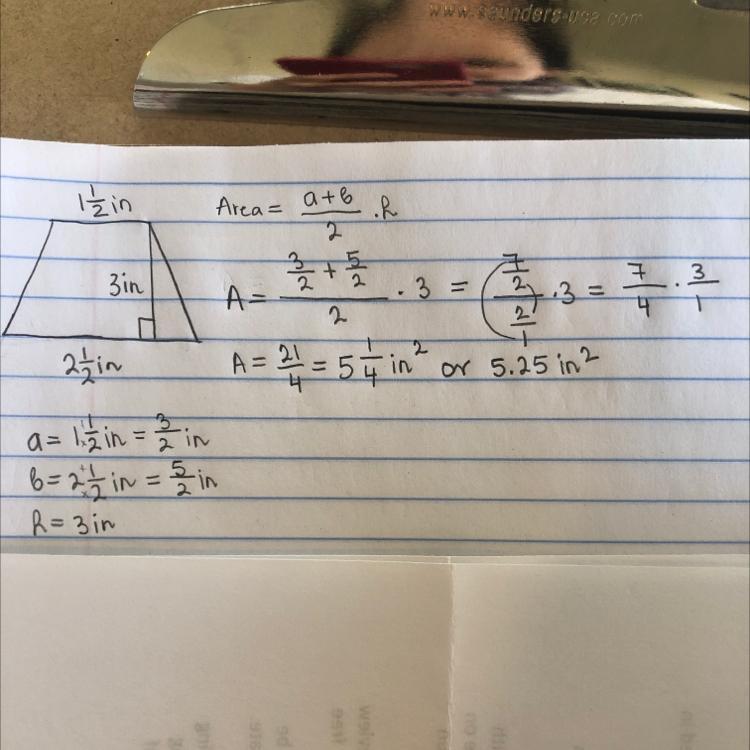 www.saunders-usa.com
1 1/2 in
Area = (a+b)/2 · h
3 in
A = (3/2 + 5/2)/2 · 3 = (7/2)/(2/1) · 3 = 7/4 · 3/1
2 1/2 in
A = 21/4 = 5 1/4 in² or 5.25 in²
a = 1 1/2 in = 3/2 in
b = 2 1/2 in = 5/2 in
h = 3 in